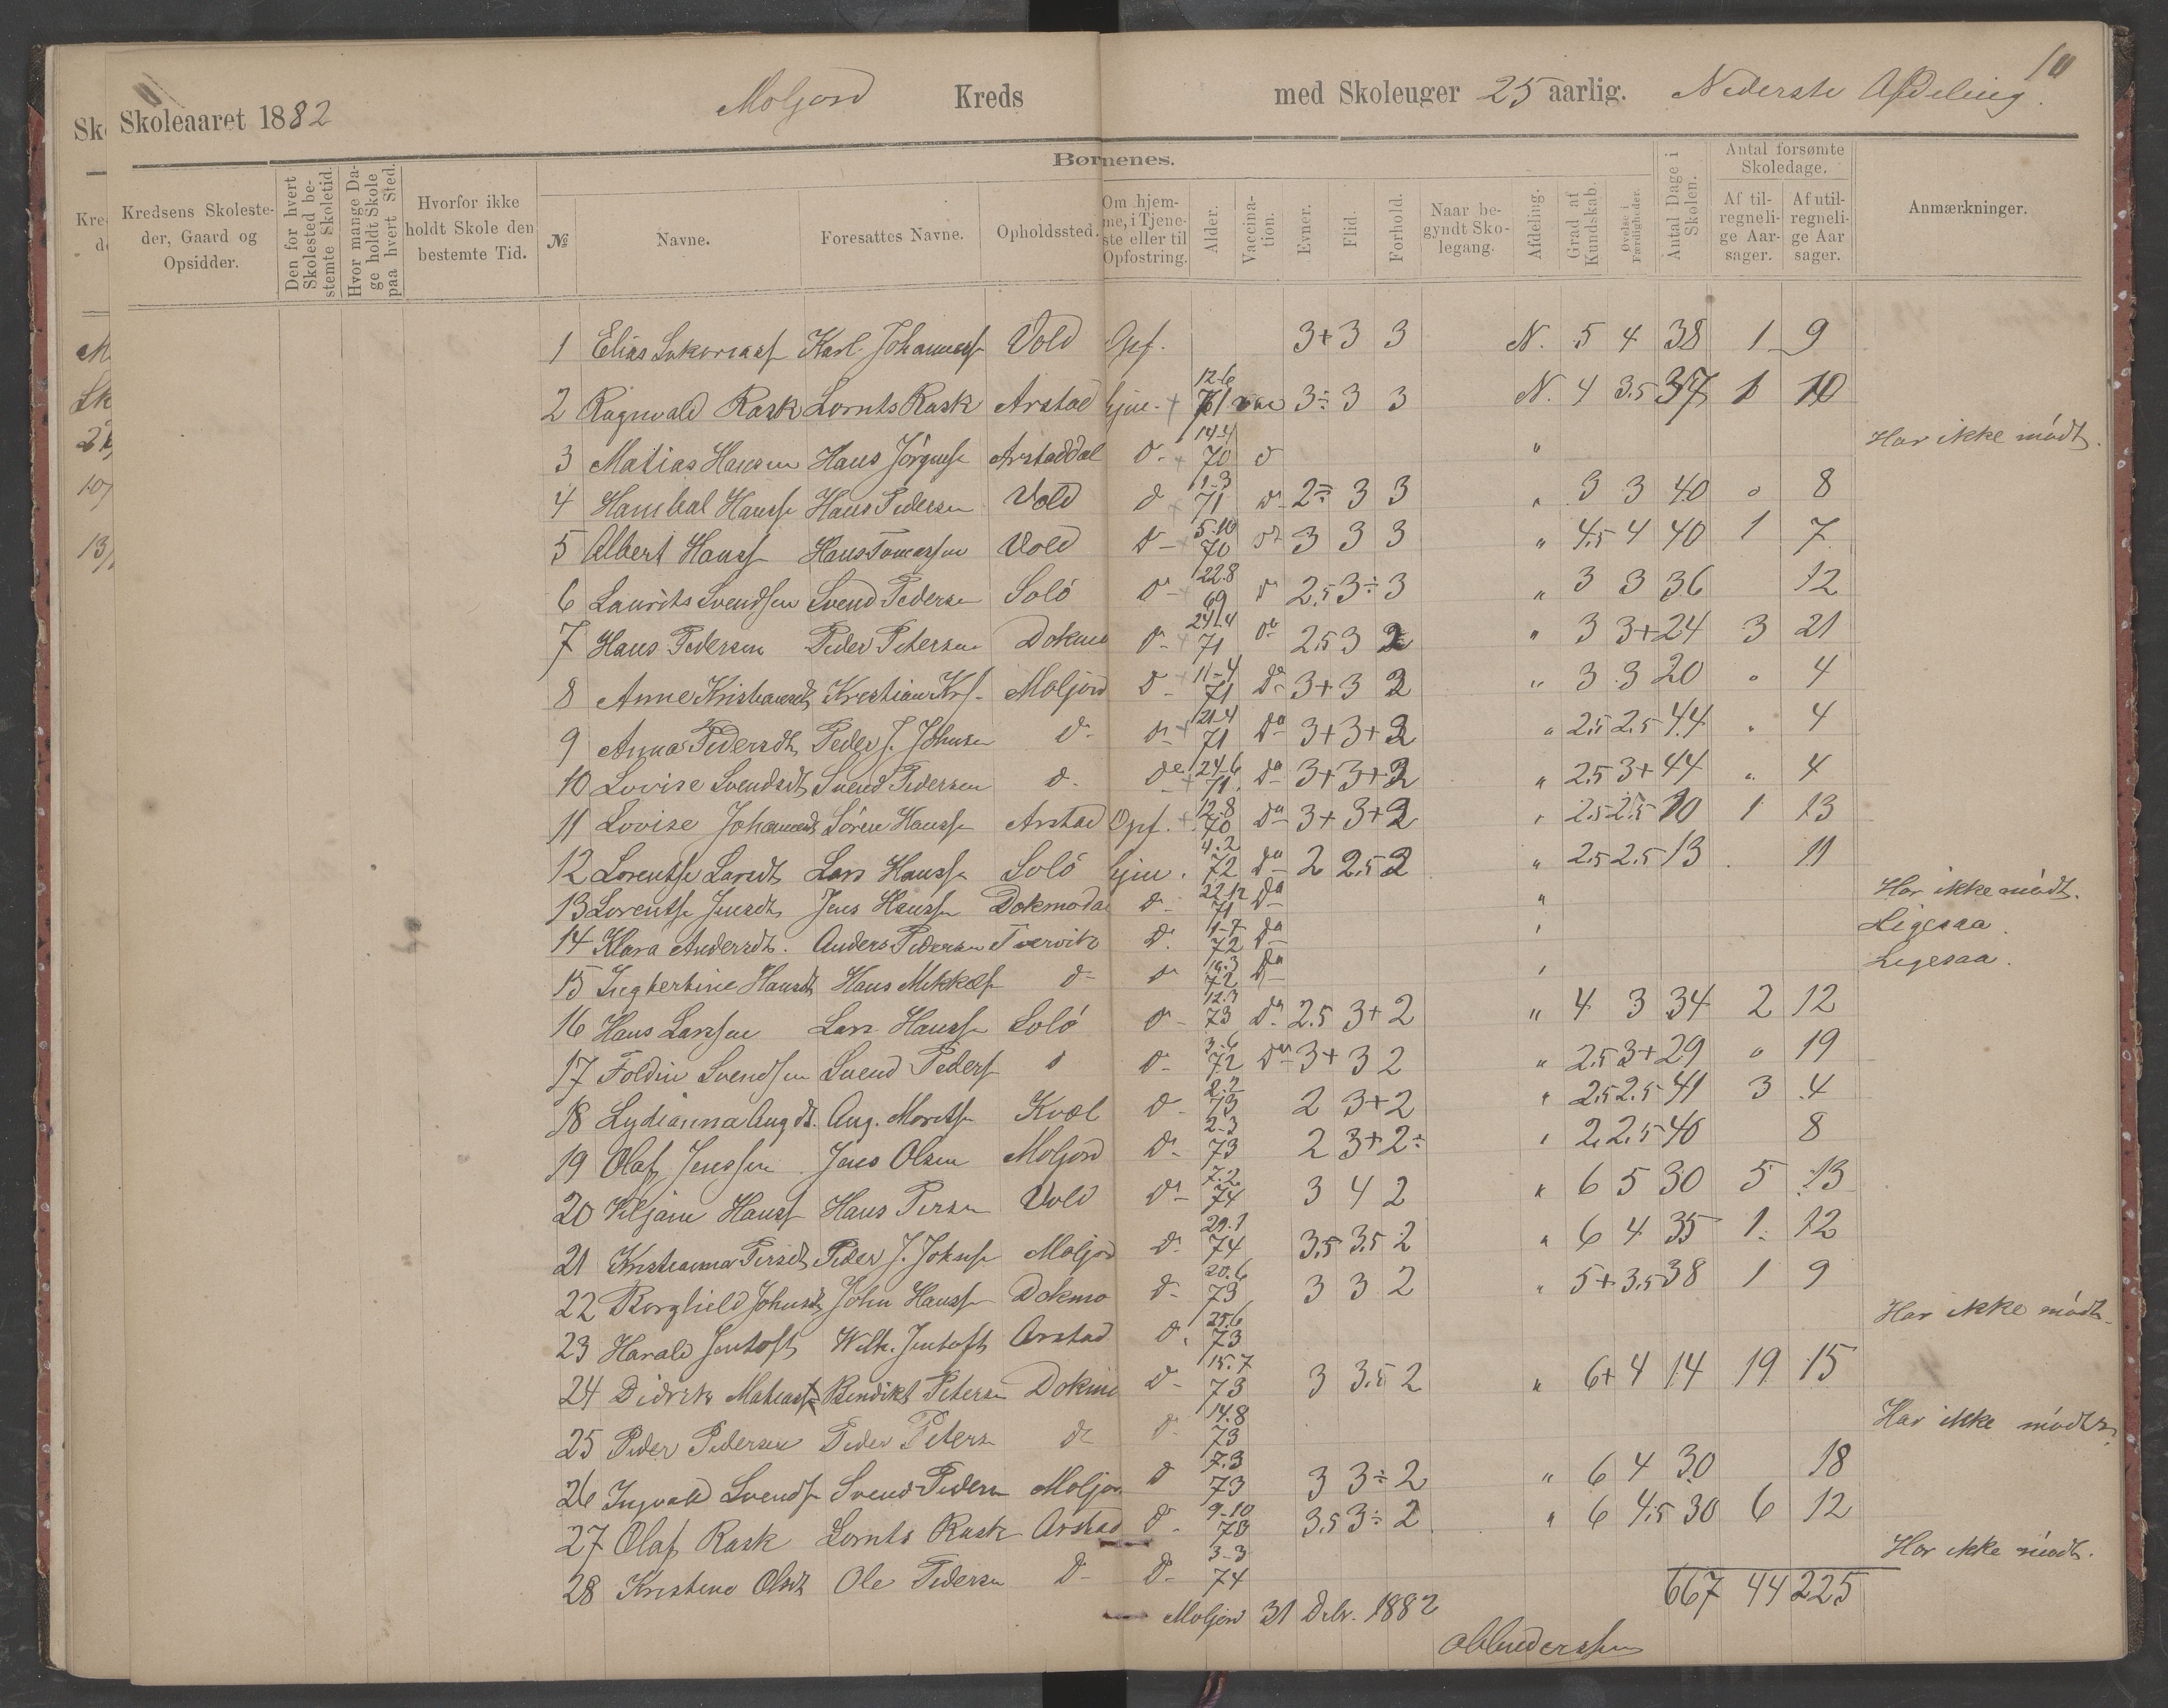 10
Skoleaaret 1882 Moljord Kreds med Skoleuger 25 aarlig. Nederste Afdeling.
Kredsens Skolesteder, Gaard og Opsidder.
Den for hvert Skolested bestemte Skoletid.
Hvor mange Dage holdt Skole paa hvert Sted.
Hvorfor ikke holdt Skole den bestemte Tid.
Børnenes.
№
Navne.
Foresattes Navne.
Opholdssted.
Om hjemme, i Tjeneste eller til Opfostring.
Alder.
Vaccination.
Evner.
Flid.
Forhold.
Naar begyndt Skolegang.
Afdeling.
Grad af Kundskab.
Øvelse i Færdigheder.
Antal Dage i Skolen.
Antal forsømte Skoledage.
Af tilregnelige Aarsager.
Af utilregnelige Aarsager.
Anmærkninger.
1 Elias Karl Vold Opf. 3+ 3 3 N. 5 4 38 1 9
2 Ragnvald Rask Lornts Rask Arstad hjm. + 12-6 71 vac 3÷ 3 3 N. 4 3.5 37 1 10
3 Matias Hansen Hans Jørgens Arstaddal d- + 14-4 70 d " Har ikke mødt.
4 Hanibal Hanss Hans Pedersen Vold d + 1-3 71 d- 2÷ 3 3 " 3 3 40 " 8
5 Albert Hanss Hans Tomassen Vold d- + 5-10 70 d 3 3 3 " 4.5 4 40 1 7
6 Laurits Svendsen Svend Pedersen Solø d- + 22.8 69 d 2.5 3÷ 3 " 3 3 36 12
7 Hans Pedersen Peder Petersen Dokmo d- + 24.4 71 do 2.5 3 2 " 3 3+ 24 3 21
8 Anne Kristiansdt Krestian Krs. Moljord d- + 11-4 71 do 3+ 3 2 " 3 3 20 " 4
9 Anna Pedersdt Peder J. Johnsen d- d- + 21-4 71 do 3+ 3+ 2 " 2.5 2.5 44 " 4
10 Lovise Svendsdt Svend Pedersen d- do + 24-6 71 do 3+ 3+ 2 " 2.5 3+ 44 " 4
11 Lovise Søren Hanss Arstad Opf. + 12.8 70 do 3+ 3+ 2 " 2.5 2.5 10 1 13
12 Lorentse Larsdt Lars Hanss Solø hjm. 4.2 72 do 2 2.5 2 " 2.5 2.5 13 . 11
13 Lorentse Jensdt Jens Hanssen Dokmodal d- 22.12 71 do " Har ikke mødt.
14 Klara Andersdt. Anders Pedersen Tvervik d. 1-7 72 do " Ligesaa.
15 Ingbertine Hansdt Hans Mikkels d- d 10.3 72 do " Ligesaa.
16 Hans Larssen Lars Hanss Solø d- 12.3 73 do 2.5 3+ 2 " 4 3 34 2 12
17 Foldin Svendsen Svend Peders d d- 3-6 72 do 3+ 3 2 " 2.5 3+ 29 " 19
18 Lydianna Augdt. Aug. Morits Kval d- 2.2 73 2 3+ 2 " 2.5 2.5 41 3 4
19 Olaf Jenssen Jens Olsen Moljord d- 2-3 73 2 3+ 2÷ " 2. 2.5 40 8
20 Viljam Hanss Hans Persen Vold d- 7.2 74 3 4 2 " 6 5 30 5 13
21 Kristianna Persdt Peder J. Johns Moljord d- 29.1 74 3.5 3.5 2 " 6 4 35 1 12
22 Borghild Johnsdt John Hanss Dokmo d- 20.6 73 3 3 2 " 5+ 3.5 38 1 9
23 Harald Jentoft Wilh. Jentoft Arstad d. 25.6 73 Har ikke mødt.
24 Didrik Matiass Bendikt Petersen Dokmo d- 15.7 73 3 3.5 2 " 6+ 4 14 19 15
25 Peder Pedersen Peder Peters d- d- 14.8 73 Har ikke mødt.
26 Ingvald Svends Svend Pedersen Moljord d 7.3 73 3 3÷ 2 " 6 4 30 18
27 Olaf Rask Lornts Rask Arstad d- 9-10 73 3.5 3÷ 2 " 6 4.5 30 6 12
28 Kristine Olsdt Ole Pedersen d- d- 3-3 74 Har ikke mødt.
667 44 225
Moljord 31 Debr. 1882